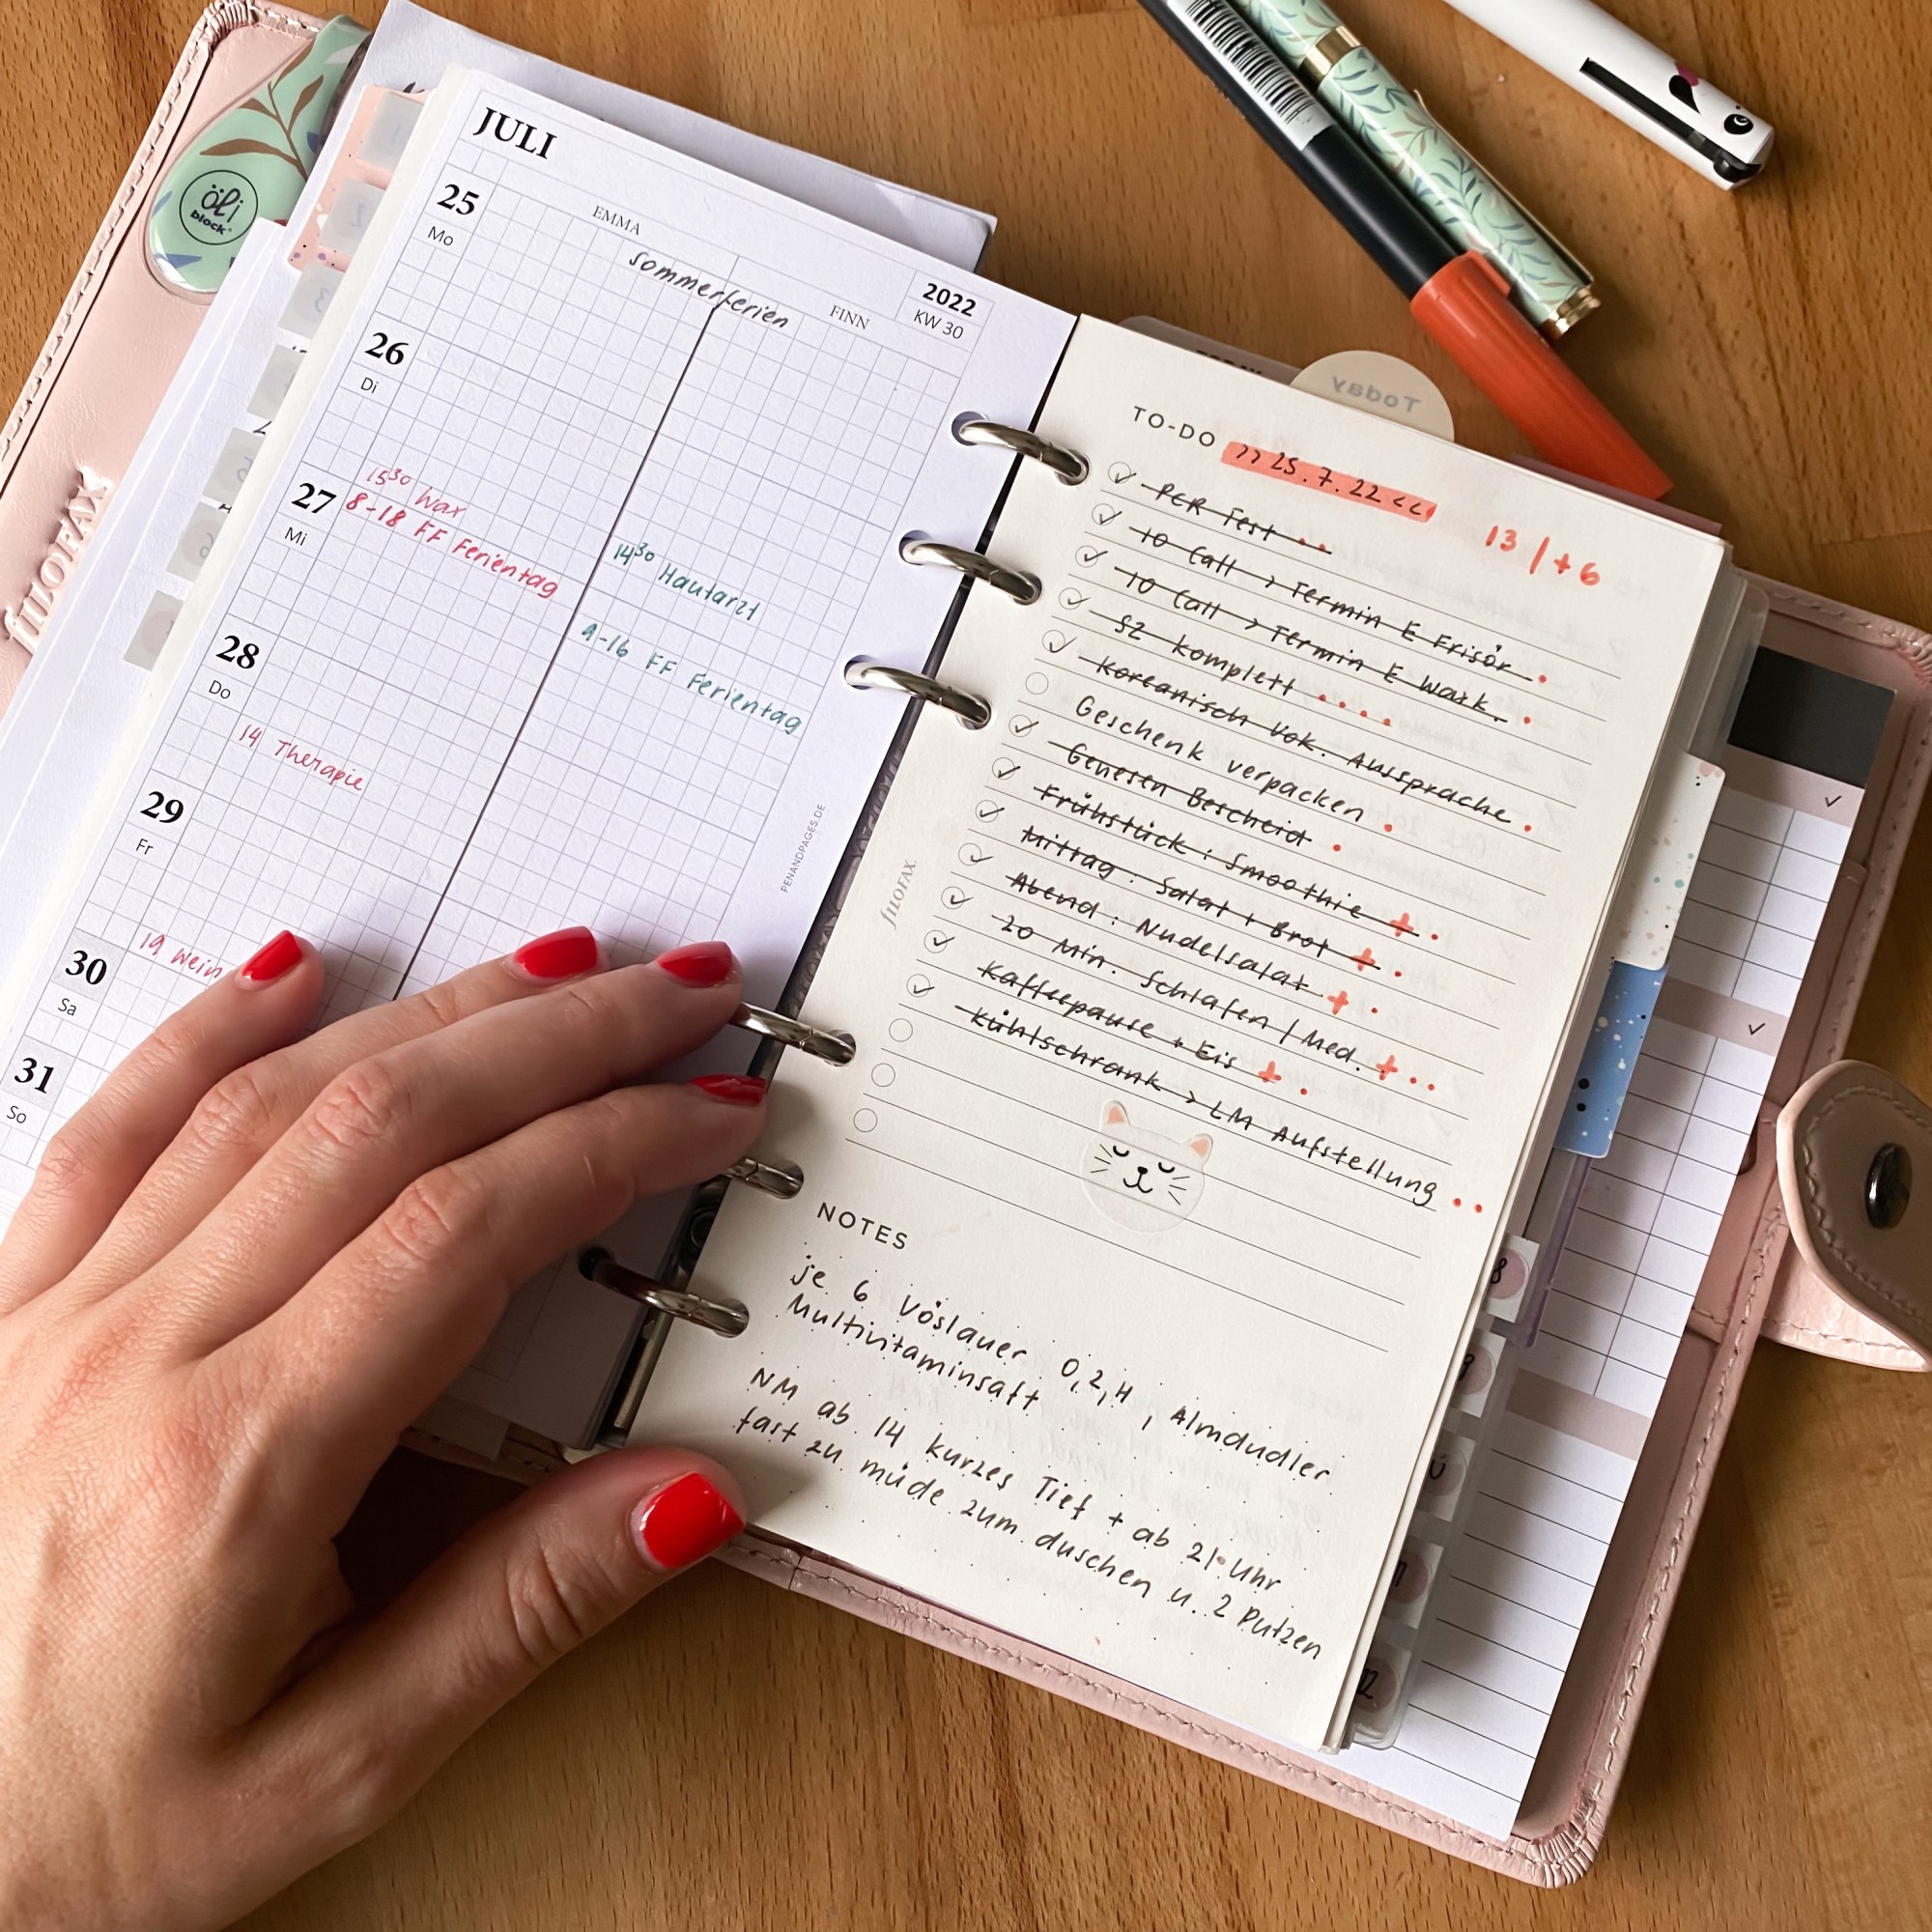 öli
block®
FILOFAX
JULI
EMMA
FINN
2022
KW 30
sommerferien
25
Mo
26
Di
15³⁰ Wax
14³⁰ Hautarzt
27
Mi
8-18 FF Ferientag
9-16 FF Ferientag
28
Do
14 Therapie
29
Fr
19 Wein
30
Sa
31
So
PENANDPAGES.DE
FILOFAX
Today
TO-DO
>> 25.7.22 <<
13 / +6
PCR Test
10 Call > Termin E Frisör
10 Call > Termin E Wax.
SZ komplett
Koreanisch Vok. Aussprache
Geschenk verpacken
Genesen Bescheid
Frühstück : Smoothie +
Mittag : Salat + Brot +
Abend : Nudelsalat +
20 Min. Schlafen / Med. +
Kaffeepause + Eis +
Kühlschrank > LM Aufstellung
NOTES
je 6 Vöslauer 0,2,H, Almdudler
Multivitaminsaft
NM ab 14 kurzes Tief + ab 21 Uhr
fast zu müde zum duschen u. 2 Putzen
8
9
12